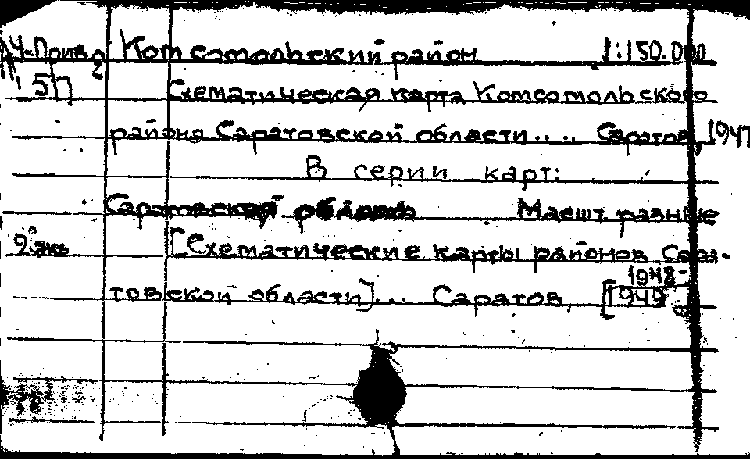 Ч-Прив.2 Комсомольский район 1:150.000
57 Схематическая карта Комсомольского
района Саратовской области.... Саратов, 1947
В серии карт:
Саратовская область Масшт. разные
2 экз [Схематические карты районов Сара-
1948-
товской области]... Саратов, [1949